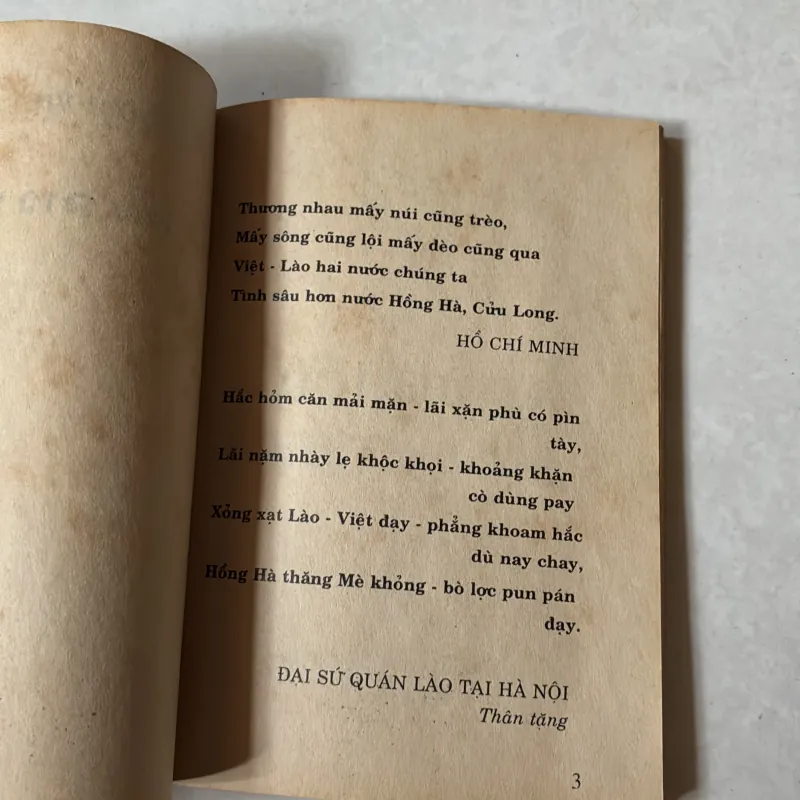 Thương nhau mấy núi cũng trèo,
Mấy sông cũng lội mấy đèo cũng qua
Việt - Lào hai nước chúng ta
Tình sâu hơn nước Hồng Hà, Cửu Long.
HỒ CHÍ MINH
Hắc hỏm căn mải mặn - lãi xặn phù có pìn
tày,
Lãi nặm nhày lẹ khộc khọi - khoảng khặn
cò dùng pay
Xỏng xạt Lào - Việt dạy - phẳng khoam hắc
dù nay chay,
Hồng Hà thăng Mè khỏng - bò lợc pun pán
dạy.
ĐẠI SỨ QUÁN LÀO TẠI HÀ NỘI
Thân tặng
3